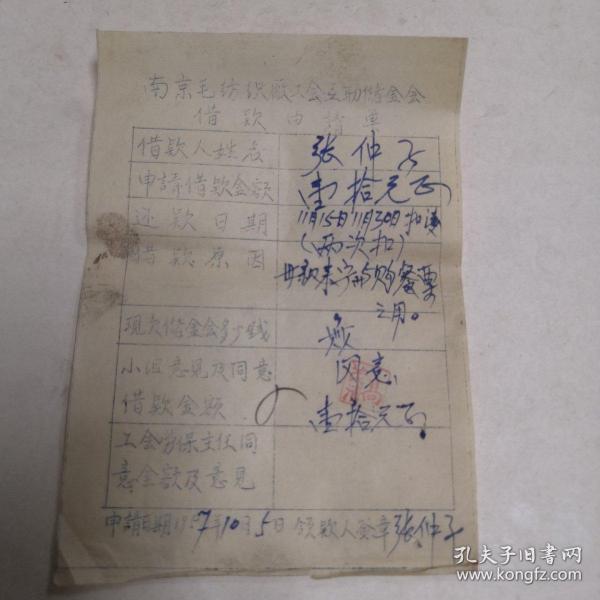 南京毛纺织厰工会互助储金会
借款申请单
借款人姓名 张仲子
申請借款金額 壹拾元正
还款日期 11月15日11月30日扣清
(两次扣)
借款原因
购餐票
之用。
现欠储金会多少錢 無
小组意见及同意 同意
借款金额 壹拾元正
工会劳保主任同
意金额及意見
申請日期1957年10月5日 领款人签章张仲子
孔夫子旧书网
www.kongfz.com